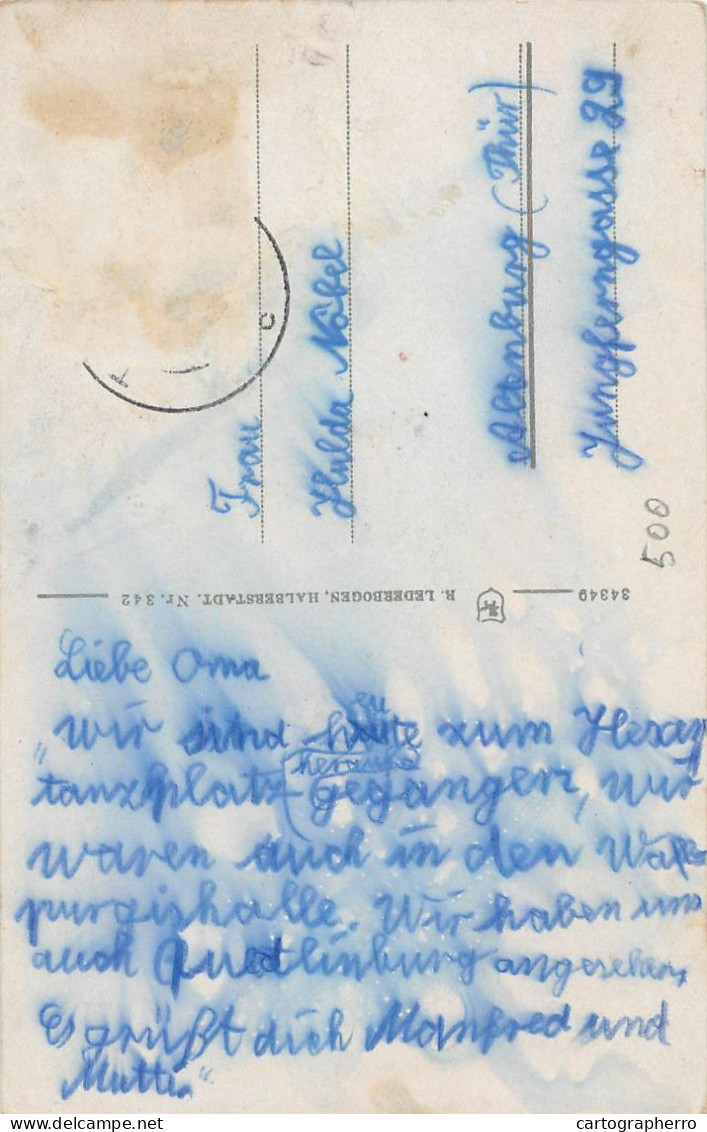 Frau
Hulda Nöbel
Altenburg (Thür)
Jungferngasse 29
500
R. LEDERBOGEN, HALBERSTADT. Nr. 342
34349
Liebe Oma
„Wir sind heute zum Hexen
(herauf
tanzplatz gegangen, wir
waren auch in den Wal
purgishalle. Wir haben uns
auch Quedlinburg angesehen,
Es grüßt dich Manfred und
Mutti"
cartographerro